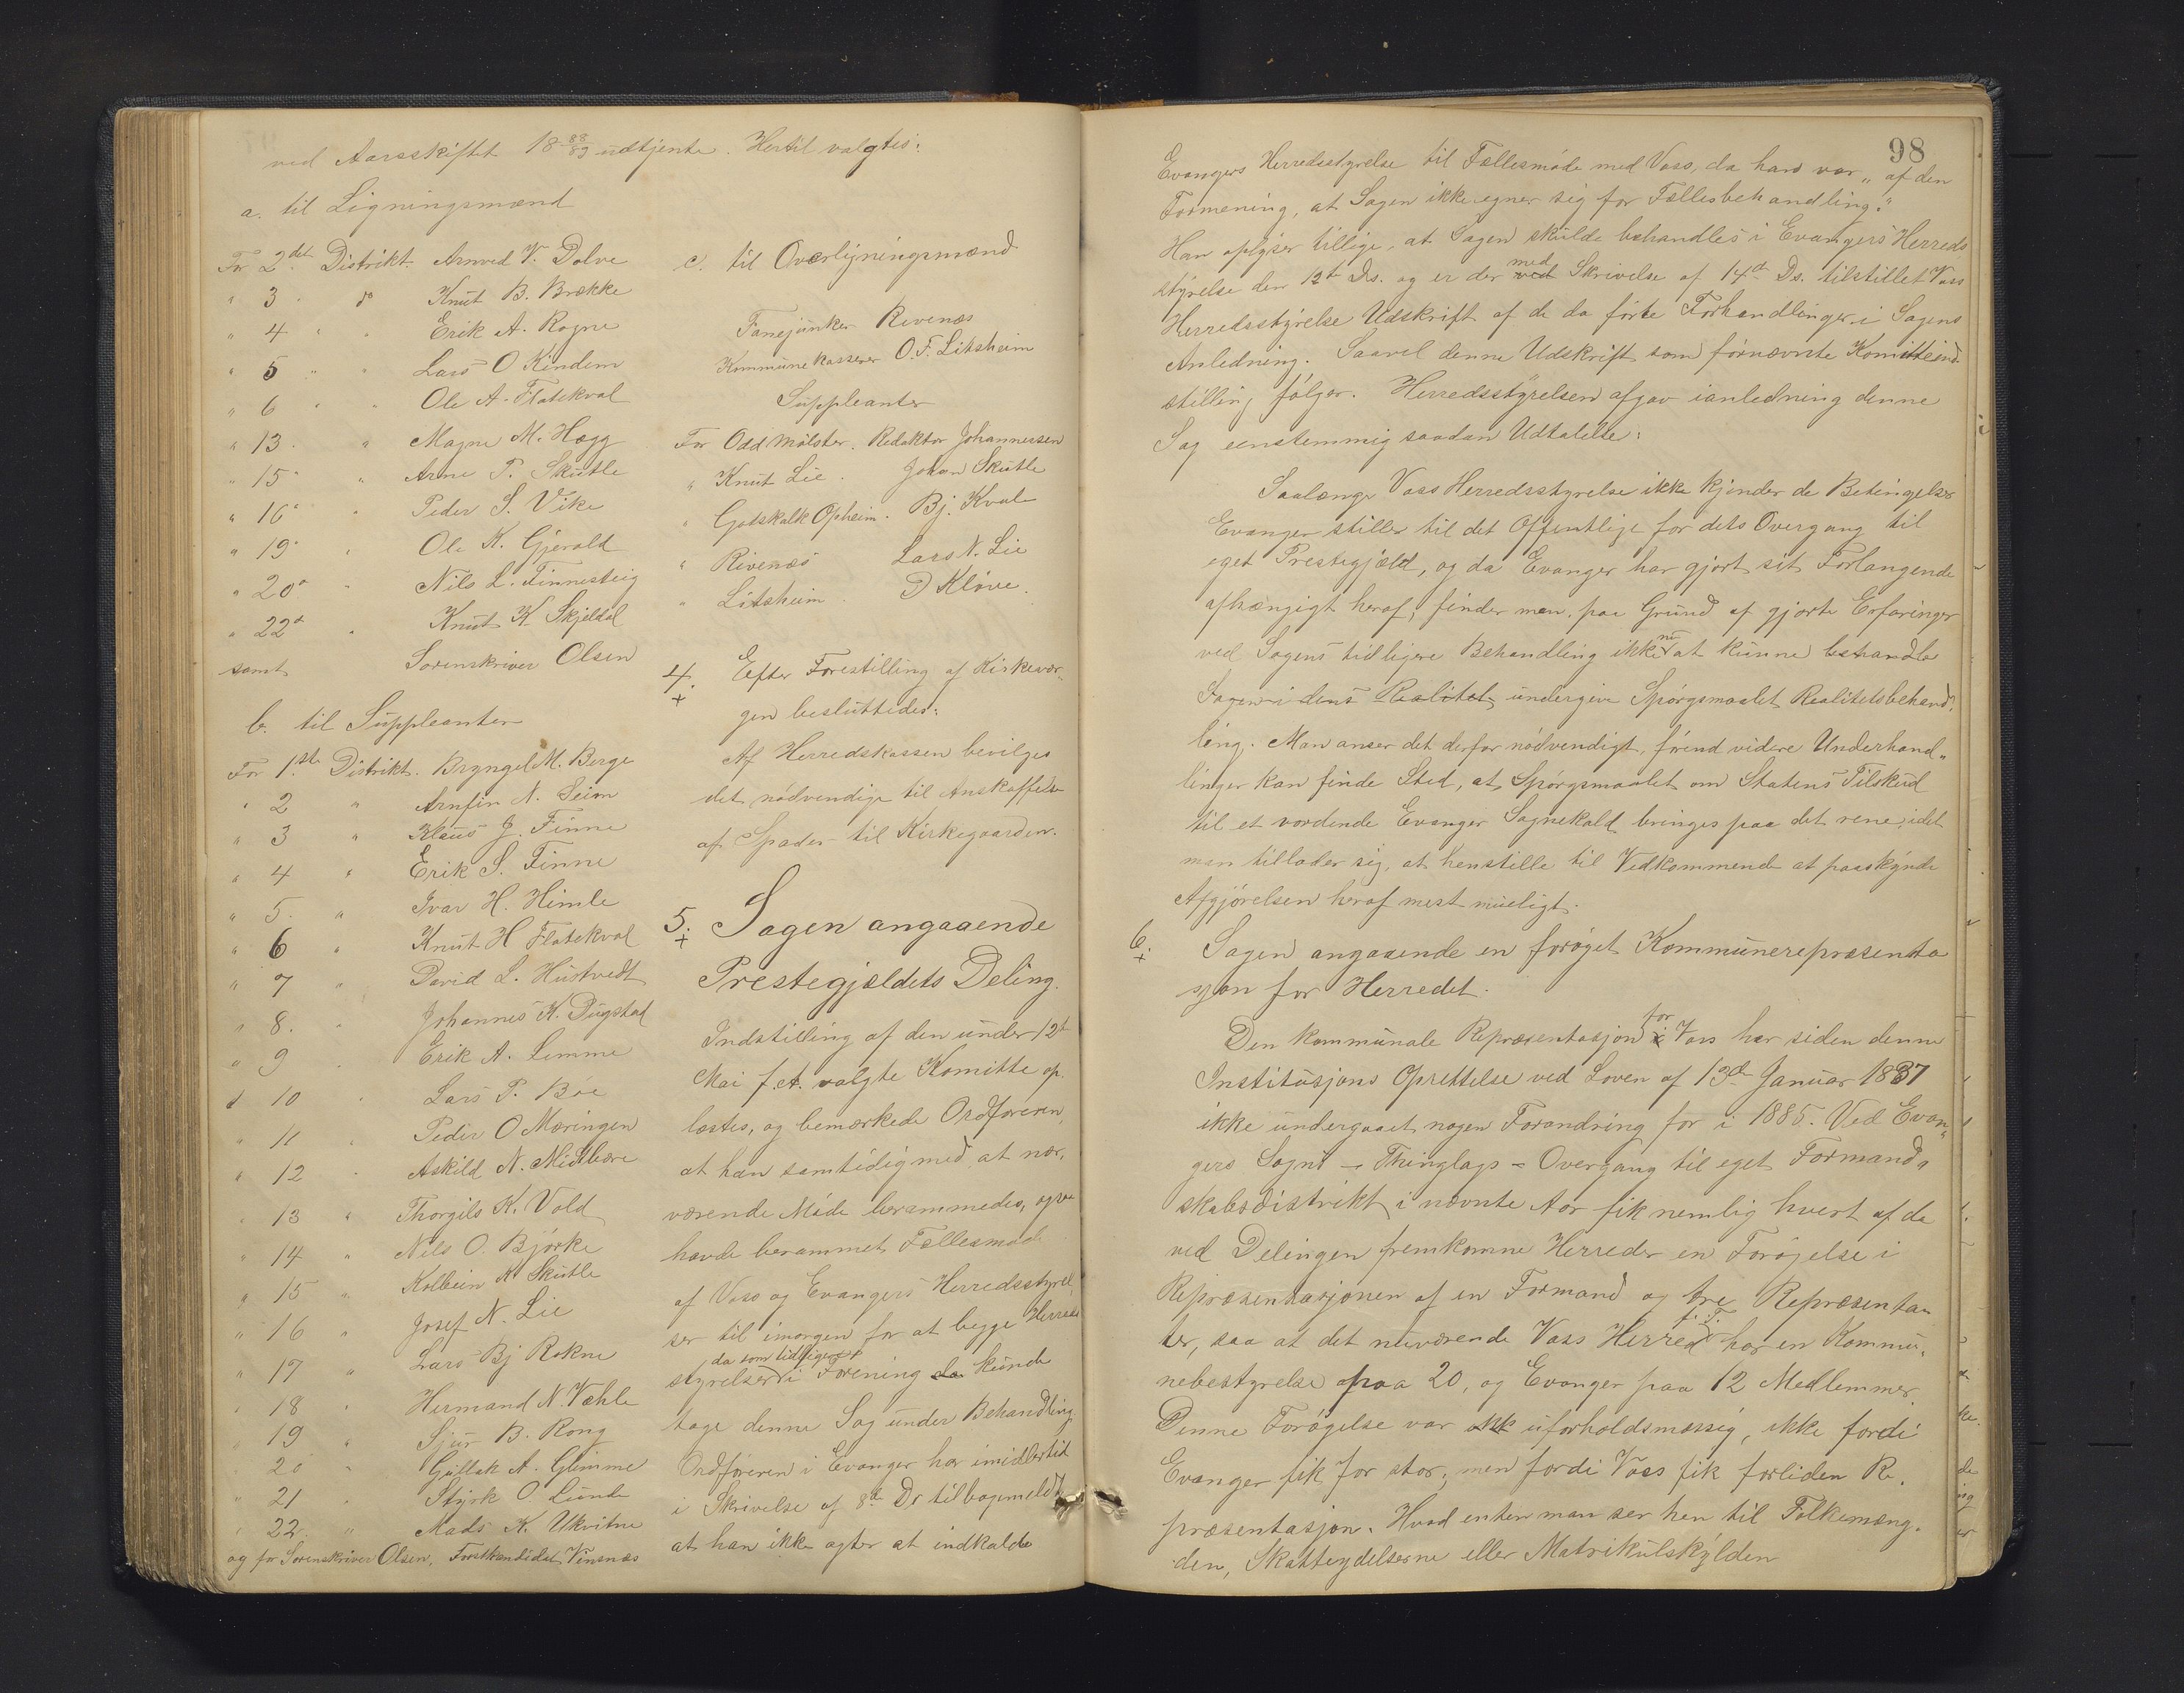 ved Aarsskiftet 18 88/89 udtjente. Hertil valgtes:
a. til Ligningsmænd
For 2det Distrikt. Arnved V. Dolve
" 3 " do Knut B. Brække
" 4 " " Erik A. Rogne
" 5 " " Lars O Kindem
" 6 " " Ole A. Flatekval
" 13. " Magne M. Hægg
" 15 " Arne P. Skutle
" 16 " Peder S. Vike
" 19 " Ole K. Gjerald
" 20 " Nils L. Finnesteig
" 22 " Knut K Skjeldal
samt Sorenskriver Olsen
b. til Suppleanter
For 1ste Distrikt. Bryngel M. Berge
" 2 " Arnfin N. Seim
" 3 " Klaus J. Finne
" 4 " Erik S. Finne
" 5. " Ivar H. Himle
" 6 " Knut H Flatekval
" 7 " David L. Hustvedt
" 8. " Johannes K. Dugstad
" 9 " Erik A. Lemme
" 10 " Lars P. Böe
" 11 " Peder O Mæringen
" 12 " Askild N. Midtbære
" 13 " Thorgils K. Vold
" 14 " Nils O. Björke
" 15 " Kolbein K Skutle
" 16 " Josef N. Lie
" 17 " Lars Bj Rokne
" 18 " Hermand N. Væhle
" 19 " Sjur B. Rong
" 20 " Gullak A. Glimme
" 21 " Styrk O Lunde
" 22. " Mads K. Ukvitne
og for Sorenskriver Olsen, Forstkandidat Vinsnæs
c. til Overligningsmænd
Fanejunker Rivenæs
Kommunekasserer O. F. Litsheim
Suppleanter
For Odd Mölster. Redaktør Johannessen
" Knut Lie. Johan Skutle
" Gotskalk Opheim. Bj. Kvale
" Rivenæs Lars N. Lie
" Litsheim. D Klöve.
4. Efter Forestilling af Kirkevær-
+ gen besluttedes:
Af Herredskassen bevilges
det nödvendige til Anskaffelse
af Spader til Kirkegaarden.
5. Sagen angaaende
+ Prestegjældets Deling.
Indstilling af den under 12te
Mai f. A. valgte Komitte op-
læstes, og bemærkede Ordföreren,
at han samtidig med at nær-
værende Möde berammedes, ogsaa
havde berammet Fællesmöde
af Voss og Evangers Herredsstyrel-
ser til imorgen for at begge Herreds
styrelser da som tidligere i Forening da kunde
tage denne Sag under Behandling.
Ordföreren i Evanger har imidlertid
i Skrivelse af 8de Ds tilbagemeldt,
at han ikke agter at indkalde
98
Evangers Herredsstyrelse til Fællesmöde med Voss, da han var "af den
Formening, at Sagen ikke egner sig for Fællesbehandling."
Han oplyser tillige, at Sagen skulde behandles i Evangers Herreds
styrelse den 12te Ds. og er der med ved Skrivelse af 14de Ds. tilstillet Voss
Herredsstyrelse Udskrift af de da förte Forhandlinger i Sagens
Anledning. Saavel denne Udskrift som fornævnte Komitteind-
stilling fölger. Herredsstyrelsen afgav ianledning denne
Sag eenstemmig saadan Udtalelse:
Saalænge Voss Herredsstyrelse ikke kjender de Betingelser
Evanger stiller til det Offentlige for dets Overgang til
eget Prestegjæld, og da Evanger har gjort sit Forlangende
afhængigt heraf, finder man, paa Grund af gjorte Erfaringer
ved Sagens tidligere Behandling ikke nu at kunne behandle
Sagen i dens Realitet undergive Spörgsmaalet Realitetsbehand-
ling. Man anser det derfor nödvendigt, förend videre Underhand-
linger kan finde Sted, at Spörgsmaalet om Statens Tilskud
til et vordende Evanger Sognekald bringes paa det rene, idet
man tillader sig, at henstille til Vedkommende at paaskynde
Afgjörelsen heraf mest mueligt.
6. Sagen angaaende en foröget Kommunerepræsenta
+ sjon for Herredet.
Den kommunale Repræsentasjon for i Voss har siden denne
Institusjons Oprettelse ved Loven af 13de Januar 1837
ikke undergaaet nogen Forandring för i 1885. Ved Evan-
gers Sogns – Thinglags – Overgang til eget Formand-
skabsdistrikt i nævnte Aar fik nemlig hvert af de
ved Delingen fremkomne Herreder en Forögelse i
Repræsentasjonen af en Formand og tre Repræsentan-
ter, saa at det nuværende Voss Herred f. T. har en Kommu-
nebestyrelse paa 20, og Evanger paa 12 Medlemmer.
Denne Forögelse var uforholdsmæssig, ikke fordi
Evanger fik for stor, men fordi Voss fik forliden Re-
præsentasjon. Hvad enten man ser hen til Folkemæng-
den, Skatteydelserne eller Matrikulskylden